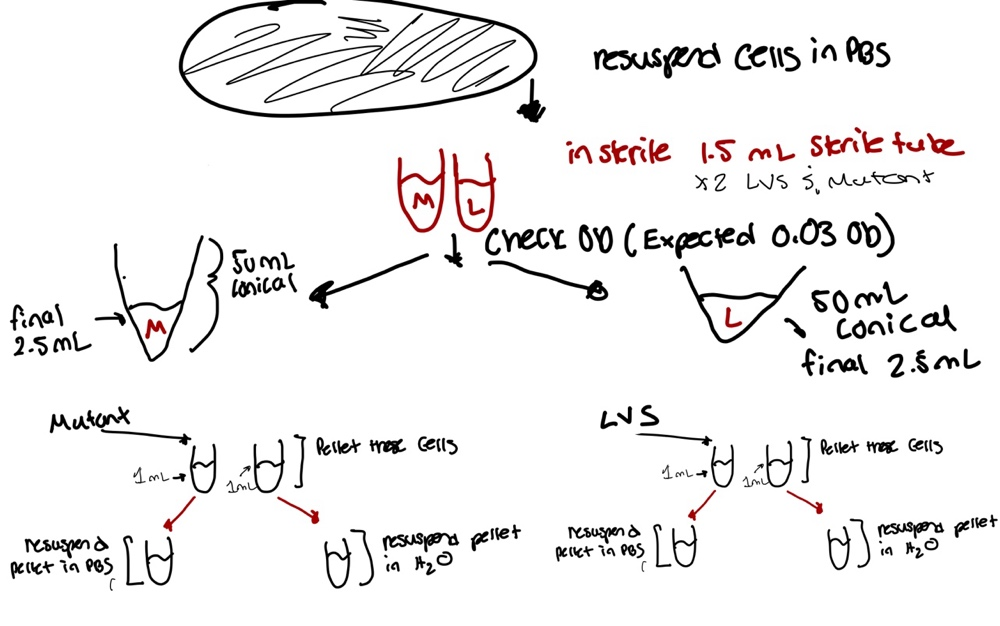 resuspend cells in PBS
in sterile 1.5 mL sterile tube
x2 LVS & Mutant
M
L
Check OD (Expected 0.03 OD)
50mL
conical
final
2.5mL
M
L
50mL
conical
final 2.5mL
Mutant
1mL
1mL
Pellet these cells
resuspend
pellet in PBS
resuspend pellet
in H2O
LVS
1mL
1mL
Pellet these cells
resuspend
pellet in PBS
resuspend pellet
in H2O